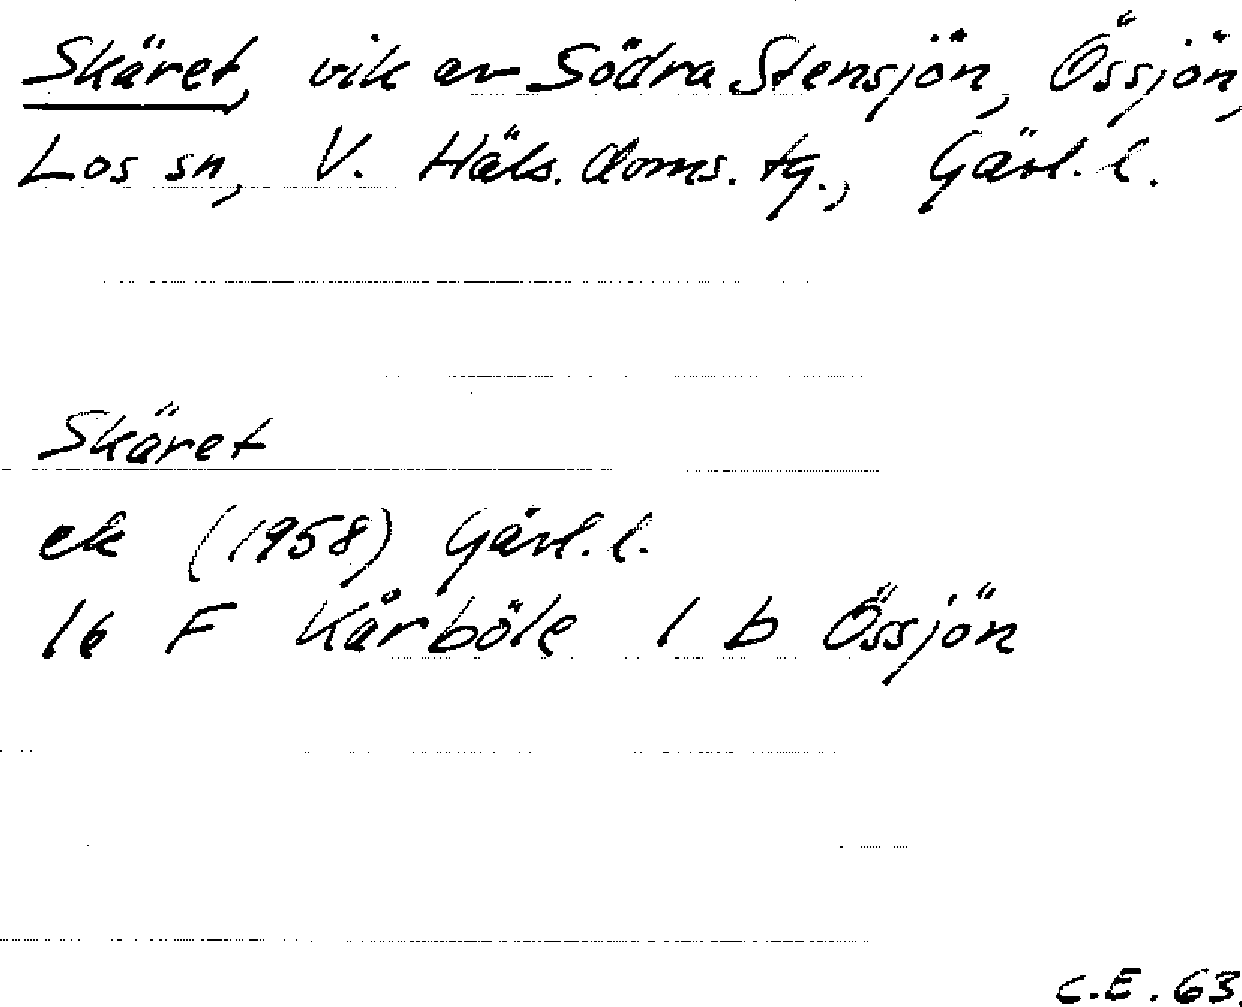 Skäret, vik av Södra Stensjön, Össjön,
Los sn, V. Häls. doms. tg., Gävl. l.
Skäret
ek (1958) Gävl. l.
16 F Kårböle 1 b Össjön
C.E. 63.